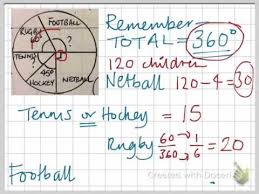 FOOTBALL
RUGBY
60°
?
?
TENNIS
?
45°
HOCKEY
NETBALL
Remember
TOTAL = 360°
120 children
Netball 120÷4=30
Tennis or Hockey = 15
Rugby 60/360 → 1/6 = 20
Football
Created with Doceri